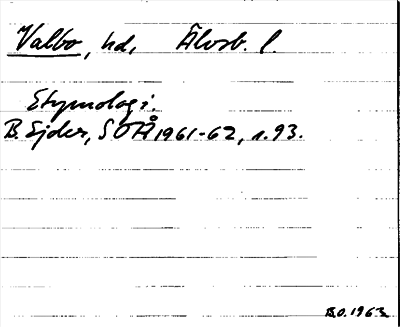 Valbo, hd, Älvsb. l.
Etymologi.
B. Ejder, SOÅ 1961-62, s. 93.
B.O. 1963